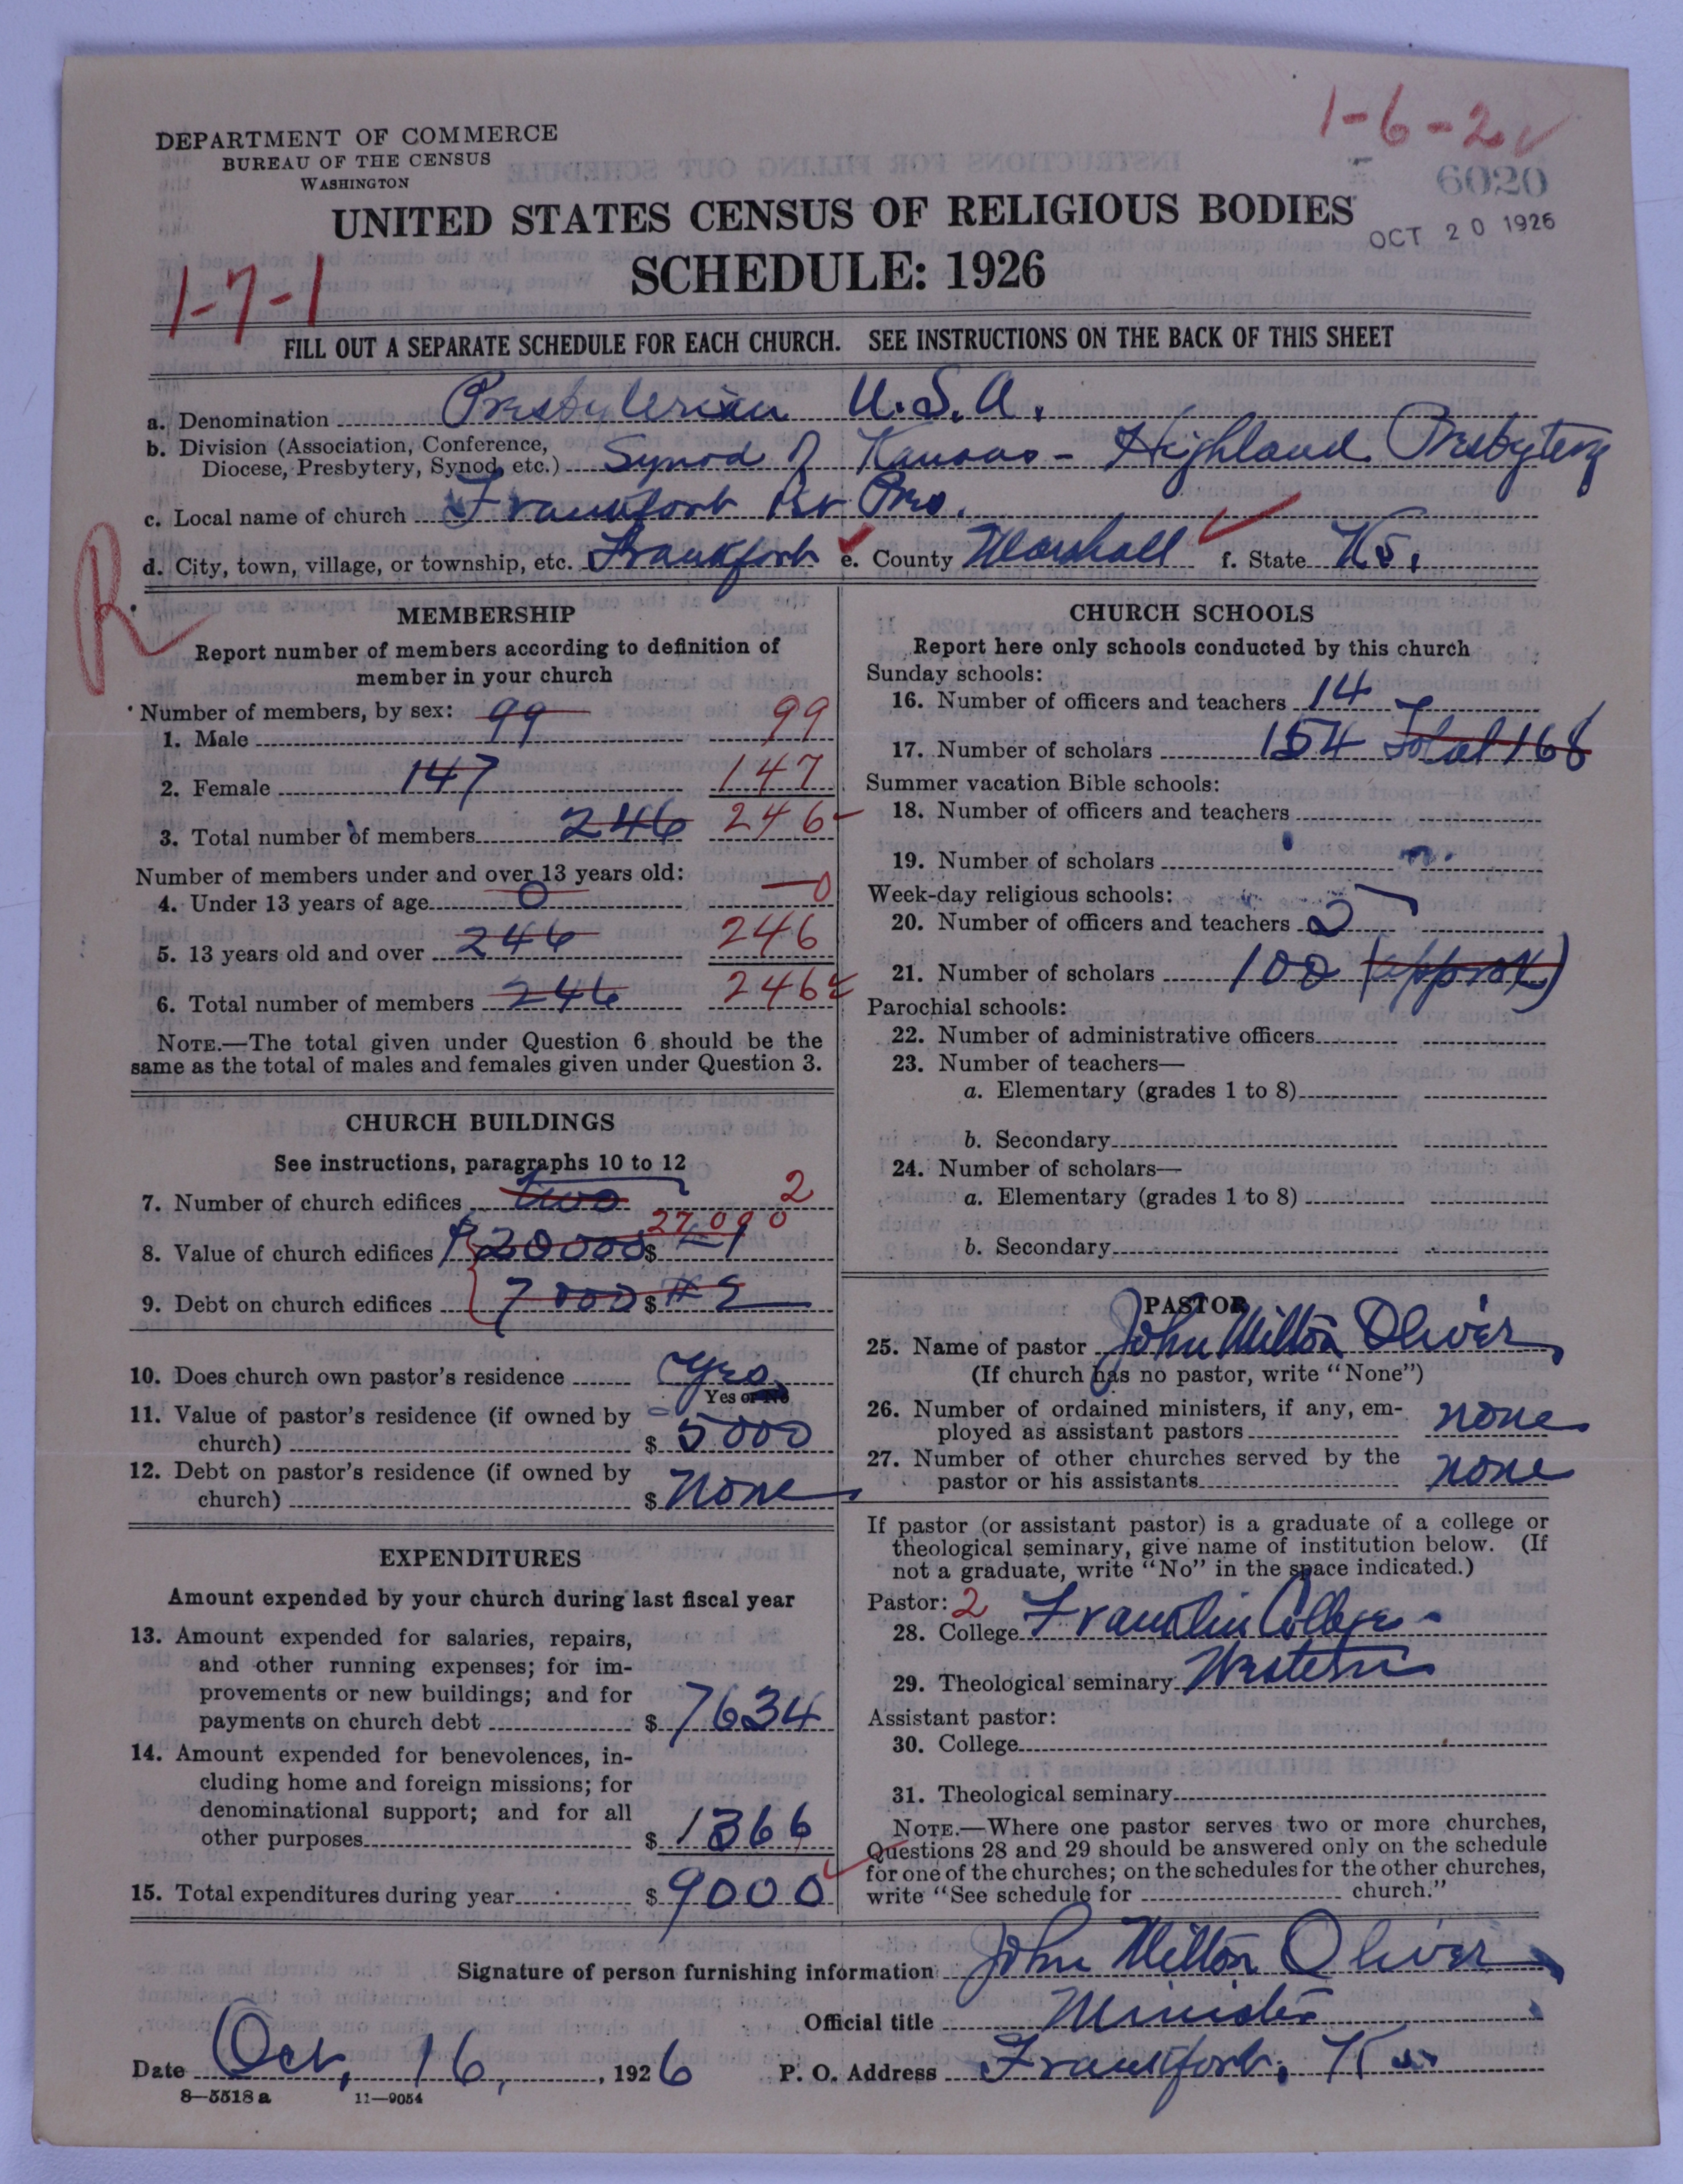 1-6-2
DEPARTMENT OF COMMERCE
BUREAU OF THE CENSUS
WASHINGTON
6020
UNITED STATES CENSUS OF RELIGIOUS BODIES
OCT 20 1926
SCHEDULE: 1926
1-7-1
FILL OUT A SEPARATE SCHEDULE FOR EACH CHURCH. SEE INSTRUCTIONS ON THE BACK OF THIS SHEET
a. Denomination Presbyterian U.S.A.
b. Division (Association, Conference,
Diocese, Presbytery, Synod, etc.) Synod of Kansas - Highland Presbytery
c. Local name of church Frankfort 1st Pres.
d. City, town, village, or township, etc. Frankfort e. County Marshall f. State Ks.
R
MEMBERSHIP
Report number of members according to definition of
member in your church
Number of members, by sex:
1. Male 99 99
2. Female 147 147
3. Total number of members 246 246
Number of members under and over 13 years old:
4. Under 13 years of age 0 0
5. 13 years old and over 246 246
6. Total number of members 246 246
NOTE.—The total given under Question 6 should be the
same as the total of males and females given under Question 3.
CHURCH BUILDINGS
See instructions, paragraphs 10 to 12
7. Number of church edifices two 2
8. Value of church edifices $20000 $ 27000
9. Debt on church edifices 7000 $ #2
10. Does church own pastor's residence Yes
Yes or No
11. Value of pastor's residence (if owned by
church) $ 5000
12. Debt on pastor's residence (if owned by
church) $ none
EXPENDITURES
Amount expended by your church during last fiscal year
13. Amount expended for salaries, repairs,
and other running expenses; for im-
provements or new buildings; and for
payments on church debt $ 7634
14. Amount expended for benevolences, in-
cluding home and foreign missions; for
denominational support; and for all
other purposes $ 1366
15. Total expenditures during year $ 9000
CHURCH SCHOOLS
Report here only schools conducted by this church
Sunday schools:
16. Number of officers and teachers 14
17. Number of scholars 154 Total 168
Summer vacation Bible schools:
18. Number of officers and teachers
19. Number of scholars
Week-day religious schools:
20. Number of officers and teachers 5
21. Number of scholars 100 (approx)
Parochial schools:
22. Number of administrative officers
23. Number of teachers—
a. Elementary (grades 1 to 8)
b. Secondary
24. Number of scholars—
a. Elementary (grades 1 to 8)
b. Secondary
PASTOR
25. Name of pastor John Milton Oliver
(If church has no pastor, write "None")
26. Number of ordained ministers, if any, em-
ployed as assistant pastors none
27. Number of other churches served by the
pastor or his assistants none
If pastor (or assistant pastor) is a graduate of a college or
theological seminary, give name of institution below. (If
not a graduate, write "No" in the space indicated.)
Pastor: 2
28. College Franklin College
29. Theological seminary Western
Assistant pastor:
30. College
31. Theological seminary
NOTE.—Where one pastor serves two or more churches,
Questions 28 and 29 should be answered only on the schedule
for one of the churches; on the schedules for the other churches,
write "See schedule for church."
Signature of person furnishing information John Milton Oliver
Official title Minister
Date Oct, 16, 1926 P. O. Address Frankfort, Ks.
8—5518 a 11—9054